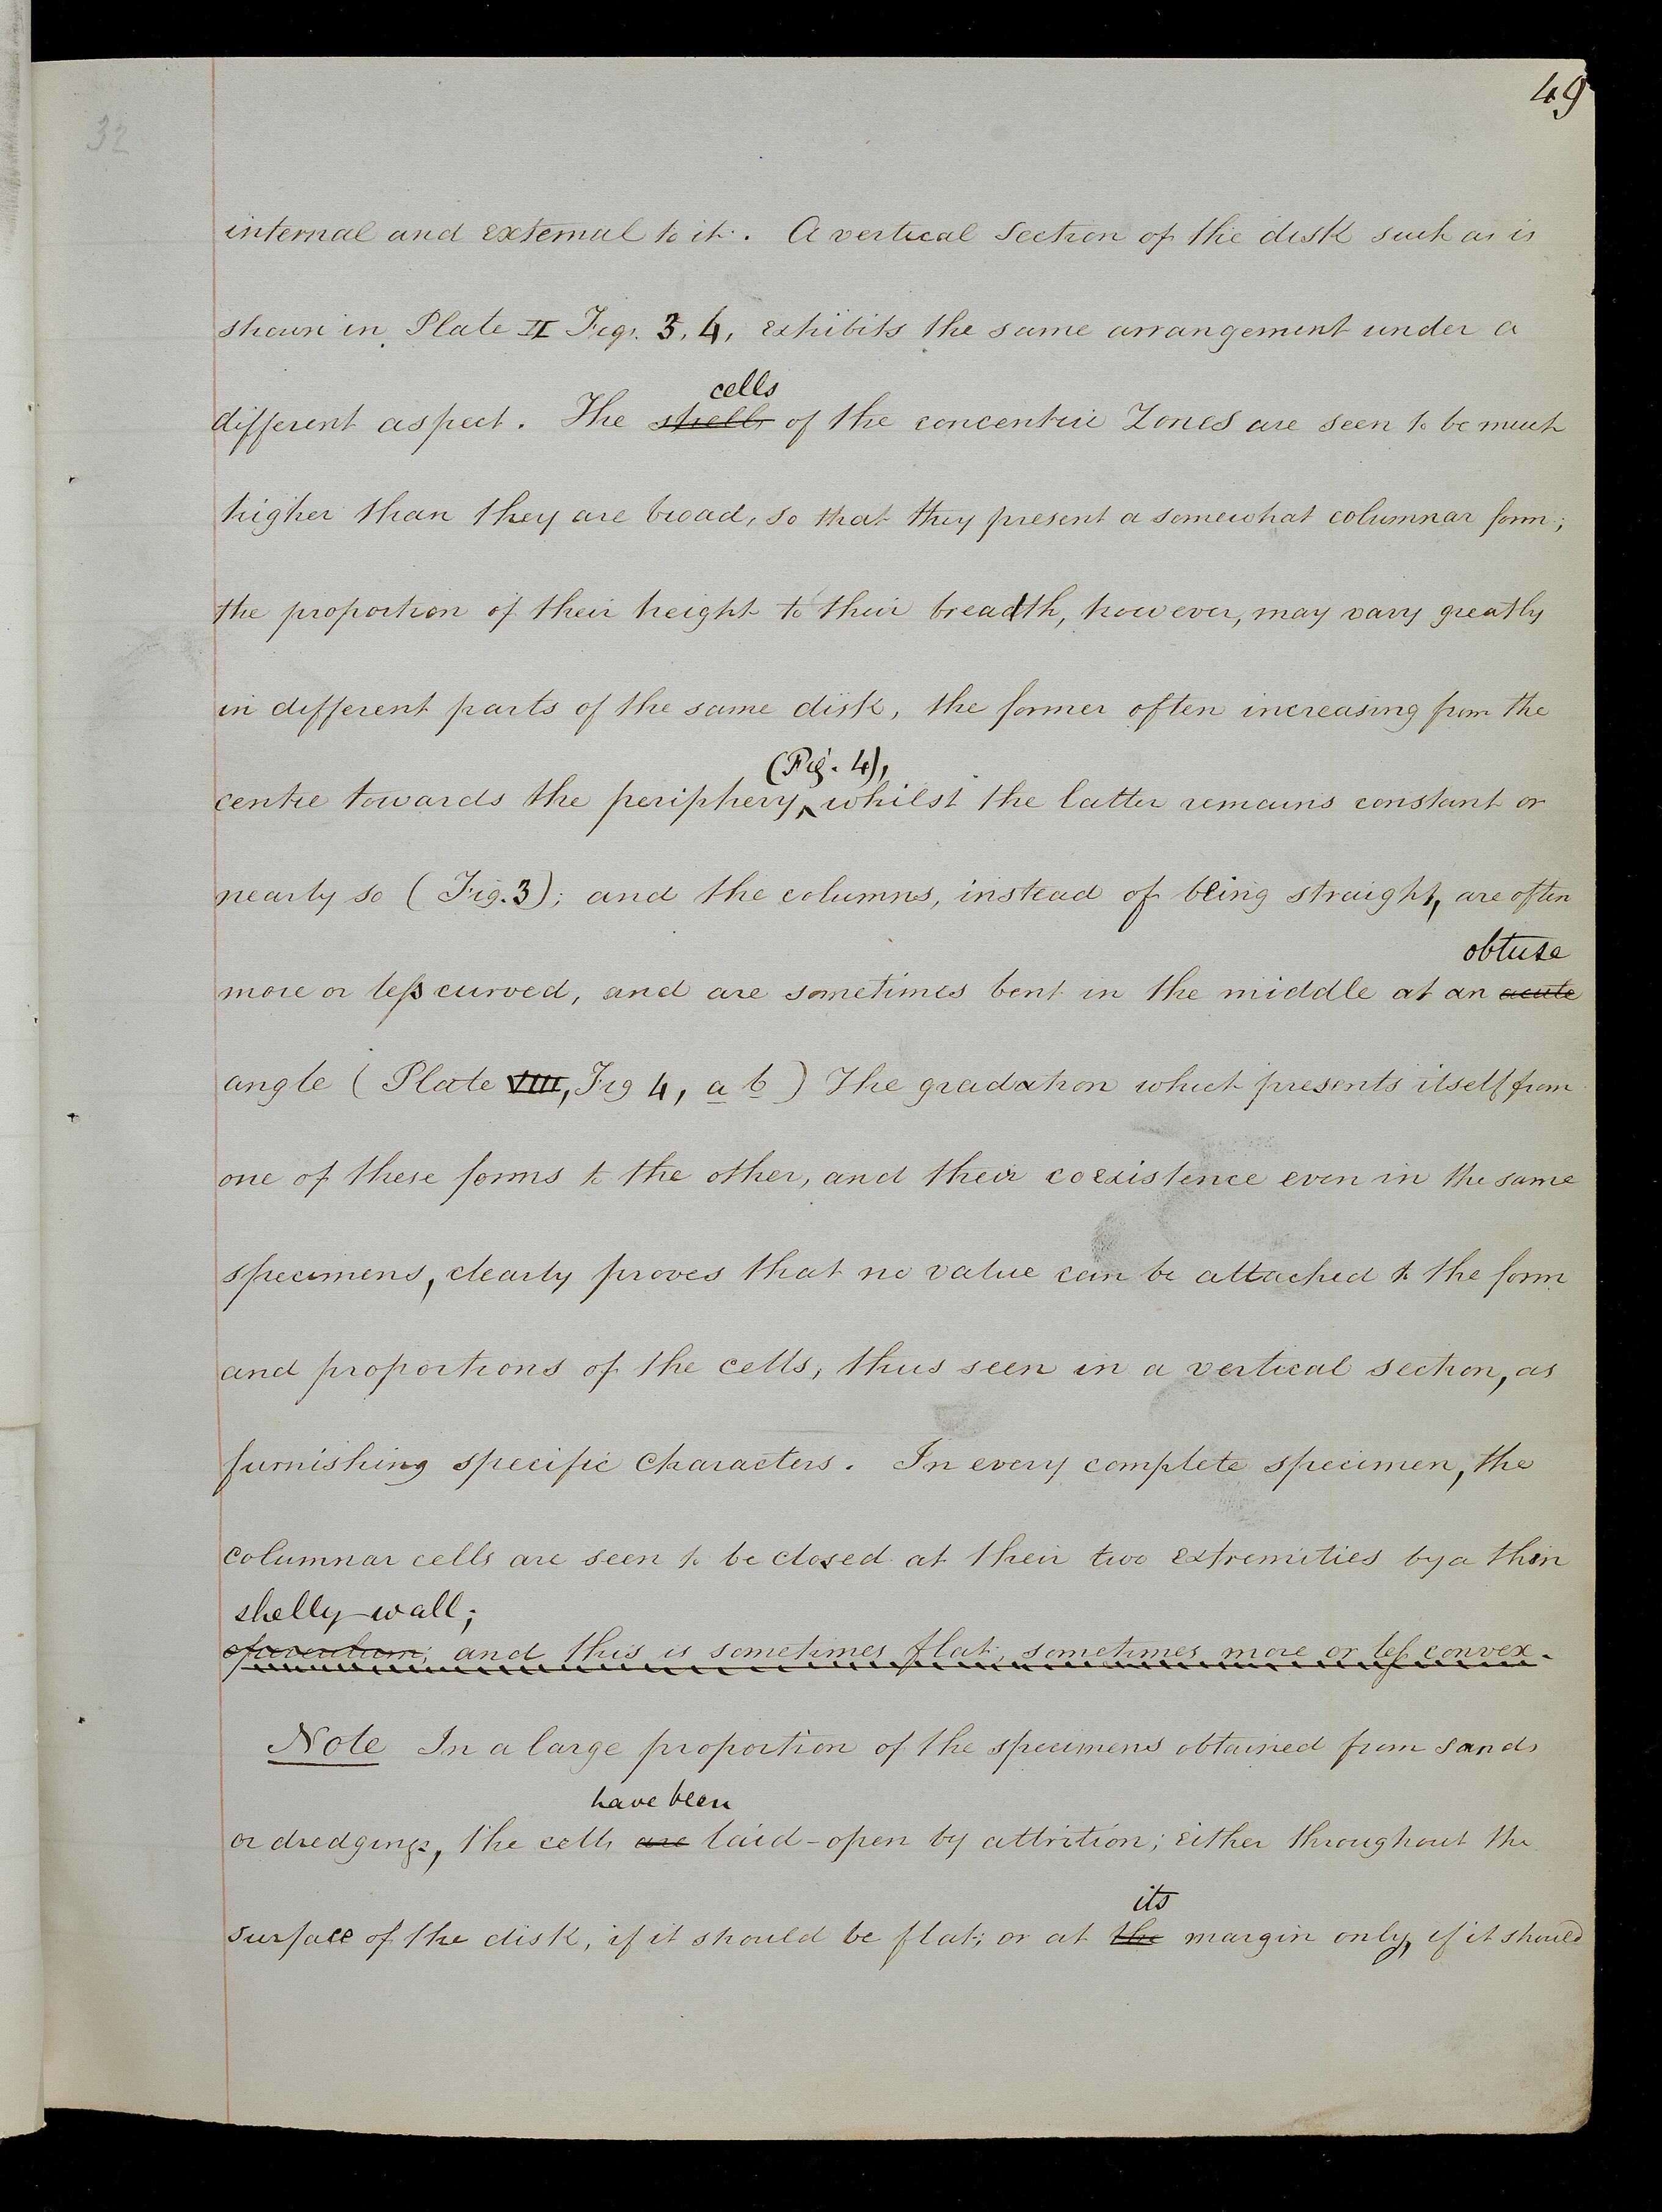 49
32
internal and external to it. A vertical Section of the disk such as is
shown in Plate II Figs. 3, 4, exhibits the same arrangement under a
cells
different aspect. The shells of the concentric Zones are seen to be much
higher than they are broad, so that they present a somewhat columnar form;
the proportion of their height to their breadth, however, may vary greatly
in different parts of the same disk, the former often increasing from the
(Fig. 4),
centre towards the periphery, whilst the latter remains constant or
nearly so (Fig. 3); and the columns, instead of being straight, are often
obtuse
more or less curved, and are sometimes bent in the middle at an acute
angle (Plate VIII, Fig 4, a b) The gradation which presents itself from
one of these forms to the other, and their coexistence even in the same
specimens, clearly proves that no value can be attached to the form
and proportions of the cells, thus seen in a vertical section, as
furnishing specific Characters. In every complete specimen, the
columnar cells are seen to be closed at their two extremities by a thin
shelly wall;
operculum; and this is sometimes flat, sometimes more or less convex.
Note In a large proportion of the specimens obtained from sands
have been
or dredgings, the cells are laid-open by attrition; either throughout the
its
surface of the disk, if it should be flat; or at the margin only, if it should